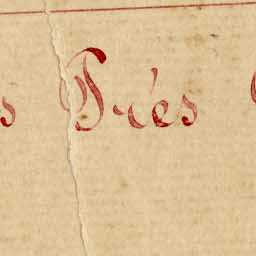 s Prés